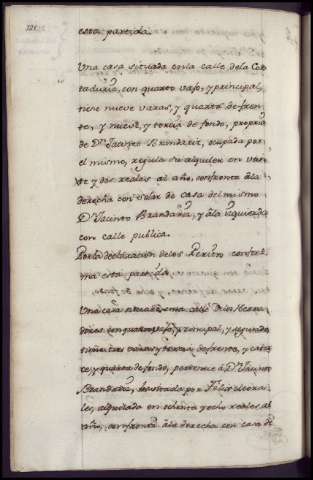 esta partida.
Una casa situada en la calle de la Con
taduría, con quarto vajo, y principal,
tiene nueve varas, y quarta de fren
te, y nueve, y tercia de fondo, propria
de Dn Jacinto Brandariz, ocupada por
el mismo, regula su alquiler en vein
te y dos reales al año, confronta a la
derecha con solar de casa del mismo
Dn Jacinto Brandariz, y a la izquierda
con calle publica.
Por la declaracion de los Peritos confor
ma esta partida.
Una casa
con quarto vajo, y principal, y segundo
varas y tercia de frente, y cator
ce, y quarta de fondo, pertenece a Dn Jacinto
Brandariz, por Felix Mora
les, alquilada en ochenta y ocho reales al
año, confronta a la derecha con casa de